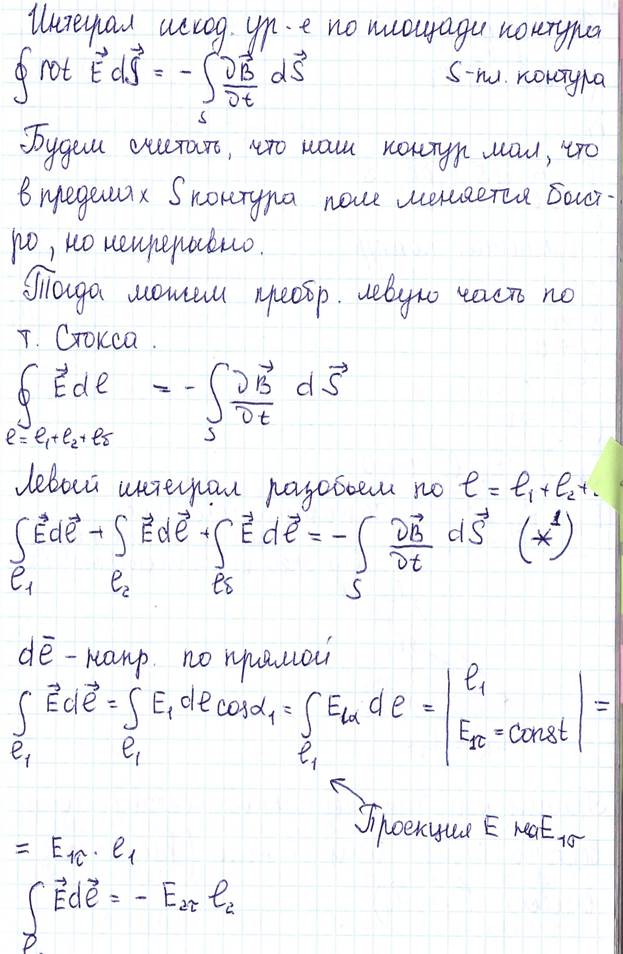 Интеграл исход. ур-е по площади контура
∮ rot E⃗ dS⃗ = - ∫_S ∂B⃗/∂t dS⃗ S-пл. контура
Будем считать, что наш контур мал, что
в пределах S контура поле меняется быст-
ро, но непрерывно.
Тогда можем преобр. левую часть по
т. Стокса.
∮_{ℓ=ℓ₁+ℓ₂+ℓδ} E⃗dℓ = - ∫_S ∂B⃗/∂t dS⃗
Левый интеграл разобьем по ℓ = ℓ₁+ℓ₂+
∫_{ℓ₁} E⃗dℓ⃗ + ∫_{ℓ₂} E⃗dℓ⃗ + ∫_{ℓδ} E⃗dℓ⃗ = - ∫_S ∂B⃗/∂t dS⃗ (*¹)
dℓ̄ - напр. по прямой
∫_{ℓ₁} E⃗dℓ⃗ = ∫_{ℓ₁} E₁dℓcosα₁ = ∫_{ℓ₁} E₁α dℓ = |ℓ₁ E₁τ=const| =
Проекция E на E₁σ
= E₁τ · ℓ₁
∫ E⃗dℓ⃗ = - E₂τ ℓ₂